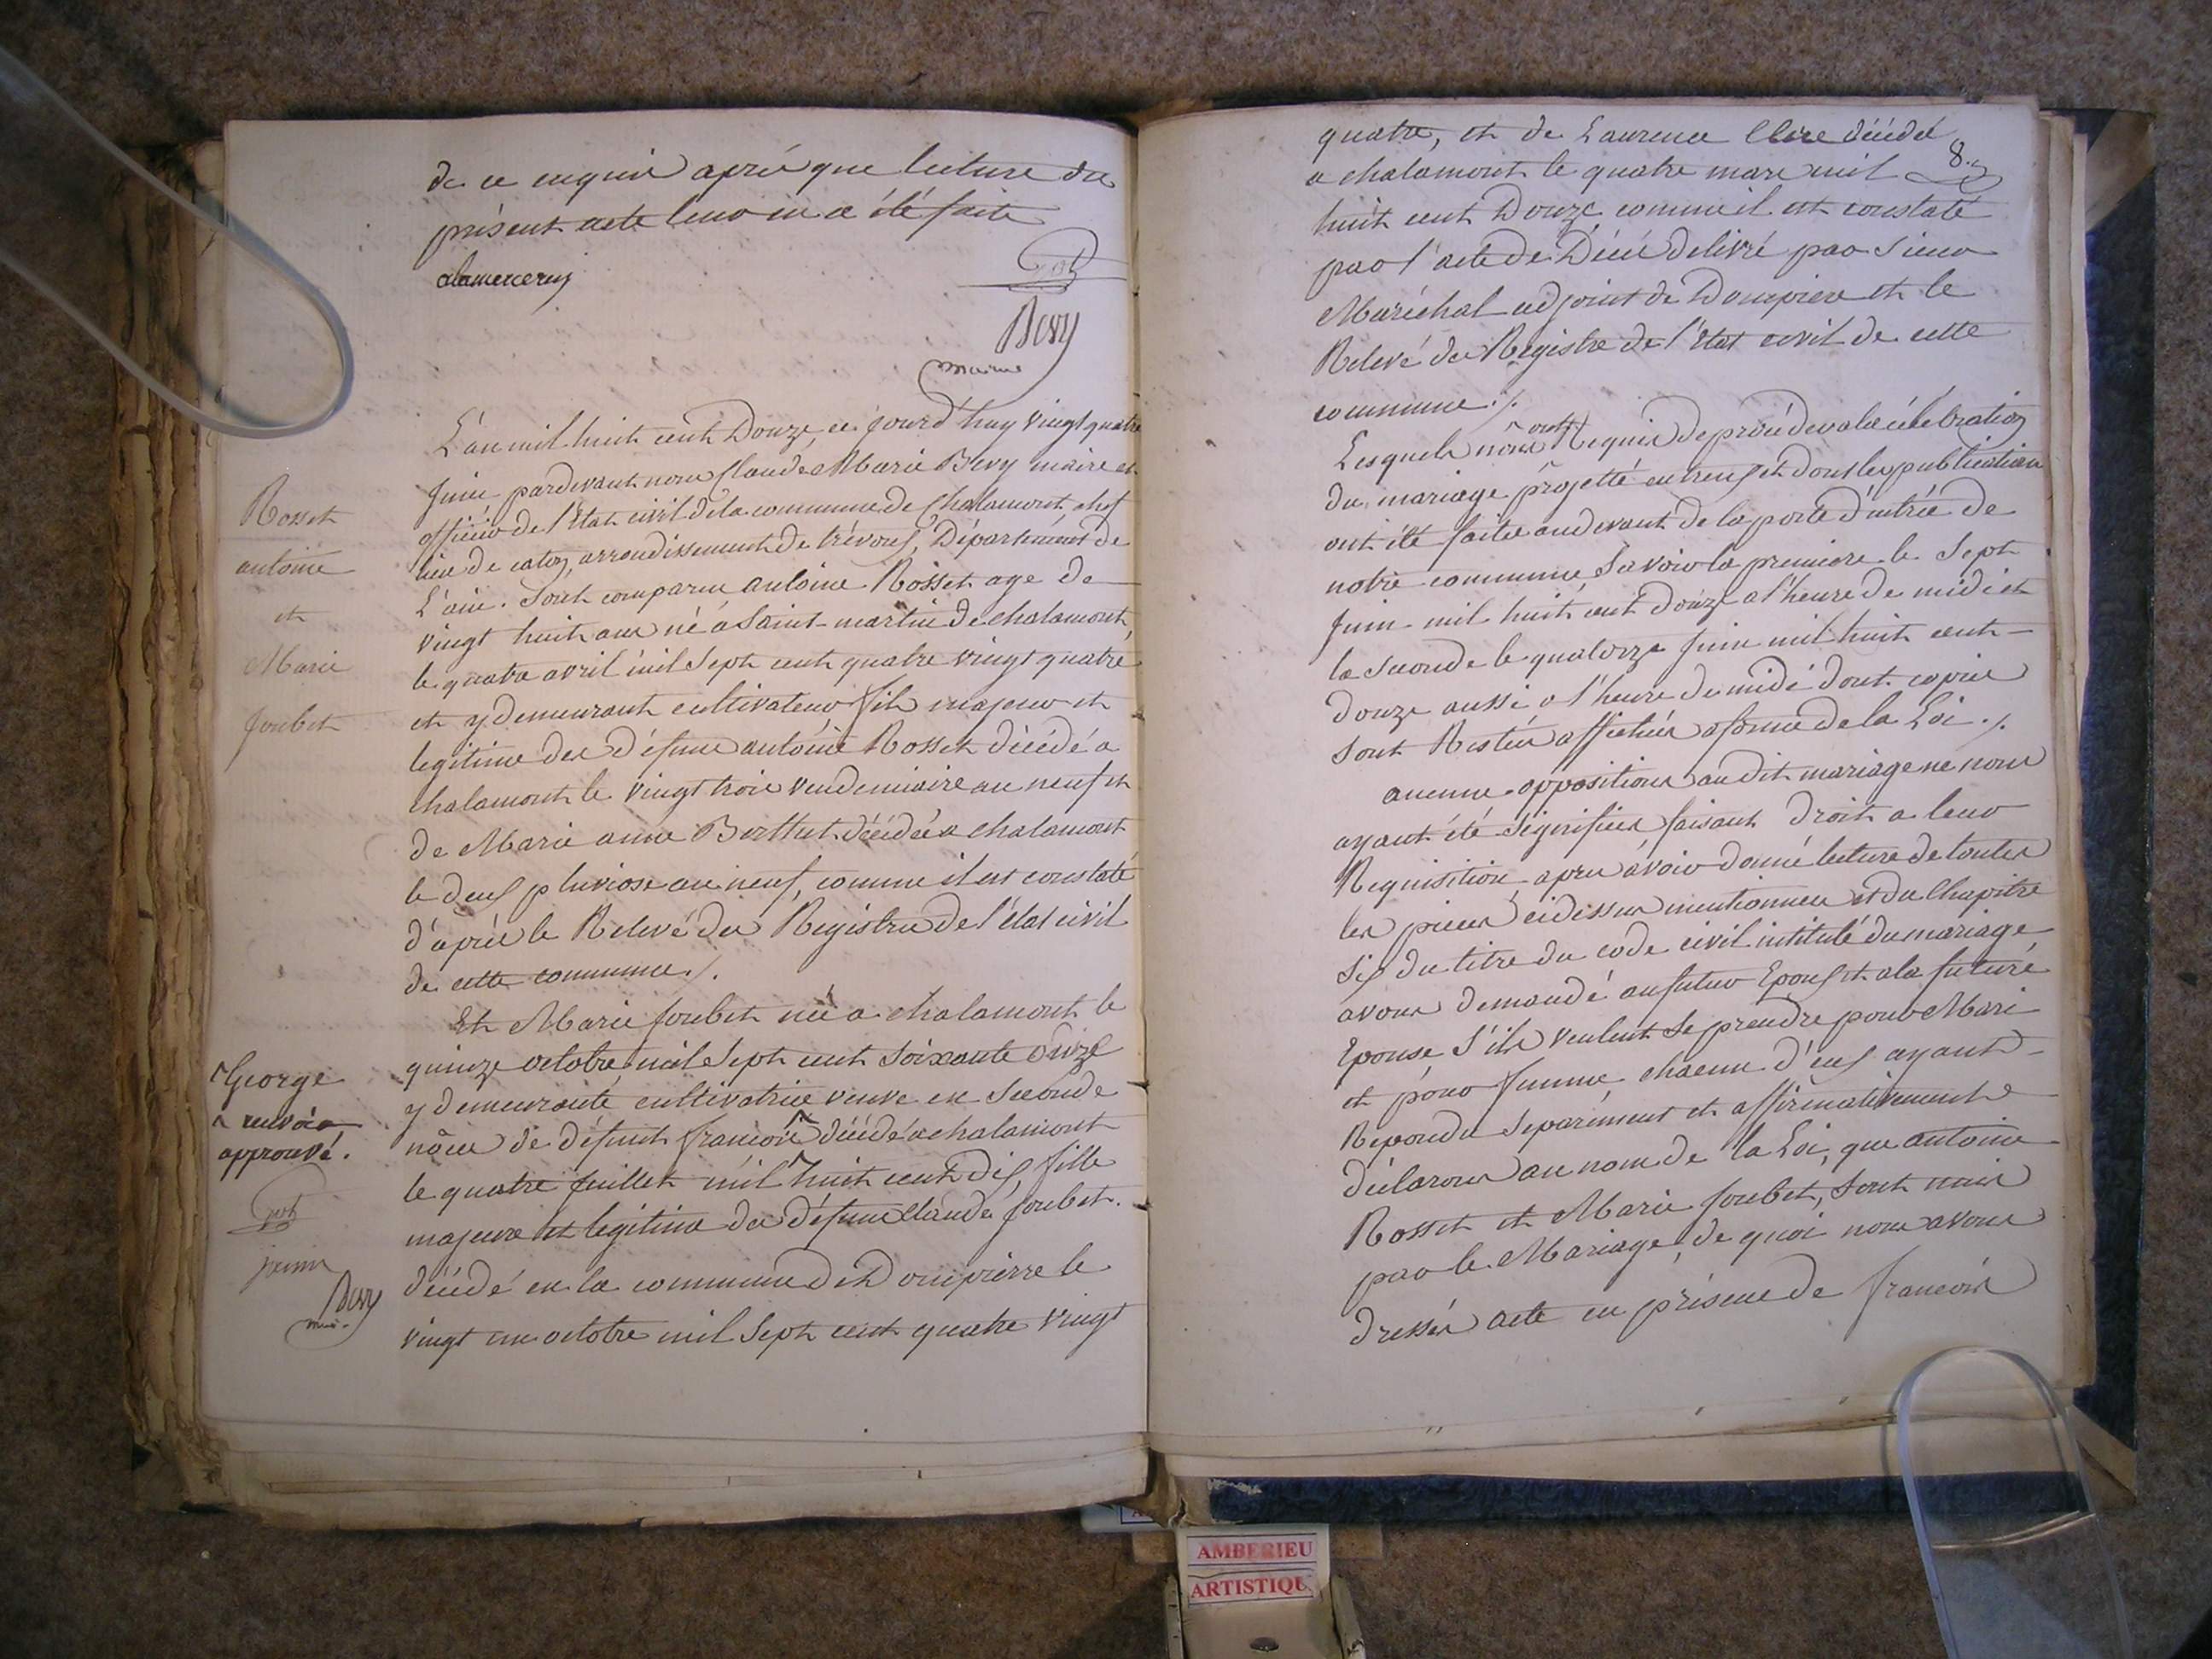 de ce enquis aprés que lecture du
présent acte leur en a été faite
alamercery
Bevy
maire
L'an mil huit cent Douze, ce jourd'huy vingt quatre
Juin pardevant nous Claude Marie Bevy maire et
officier de l'Etat civil de la commune de Chalamont, chef
lieu de caton, arrondissement de trévoux, Département de
L'ain. Sont comparu antoine Rosset age de
vingt huit ans né a Saint-martin de chalamont
le quatre avril mil Sept cent quatre vingt quatre
et y demeurant cultivateur fils majeur et
legitime des défunt antoine Rosset décédé a
chalamont le vingt trois vendemiaire an neuf et
de Marie anne Berthet décédée a chalamont
le deux pluviose an neuf, comme il est constaté
d'aprés le Relevé des Registres de l'état civil
de cette commune ./.
Et Marie joubet née a chalamont le
quinze octobre mil Sept cent Soixante onze
y demeurante cultivatrice veuve en Seconde
nôce de défunt francois ^ décédé a chalamont
le quatre Juillet mil huit cent Dix, fille
majeure et legitime de défunt Claude joubet.
décédé en la commune de Dompierre le
vingt un octobre mil Sept cent quatre vingt
Rosset
antoine
et
Marie
joubet
^ George
^ renvoi
approuvé.
Bevy
8.
quatre, et de Laurence Clere décédé
a chalamont le quatre mars mil
huit cent Douze comme il est constaté
par l'acte de Décé delivré par Sieur
Maréchal adjoint de Dompiere et le
Relevé du Registre de l'Etat civil de cette
commune ./.
Lesquels nous ont Requis de procéder a la célébration
du mariage projetté entreux et dont les publications
ont été faites audevant de la porte d'entrée de
notre commune, Savoir la premiere le Sept
Juin mil huit cent douze a l'heure de midi et
la Seconde le quatorze Juin mil huit cent
douze aussi a l'heure de midi dont copies
Sont Restées affichées a forme de la Loi ./.
aucune opposition audit mariage ne nous
ayant été Signifiées faisant Droit a leur
Requisition, apres avoir donné lecture de toutes
les pieces cidessus mentionnees et du Chapitre
Six du titre du code civil intitulé du mariage
avons demandé au futur Epoux et a la future
Epouse, S'ils veulent Se prendre pour Mari
et pour femme, chacun d'eux ayant
Repondu Separément et affirmativement
déclarons au nom de la Loi, que antoine
Rosset et Marie joubet, Sont unis
par le Mariage, de quoi nous avons
dressés acte en présence de francois
AMBERIEU
ARTISTIQU